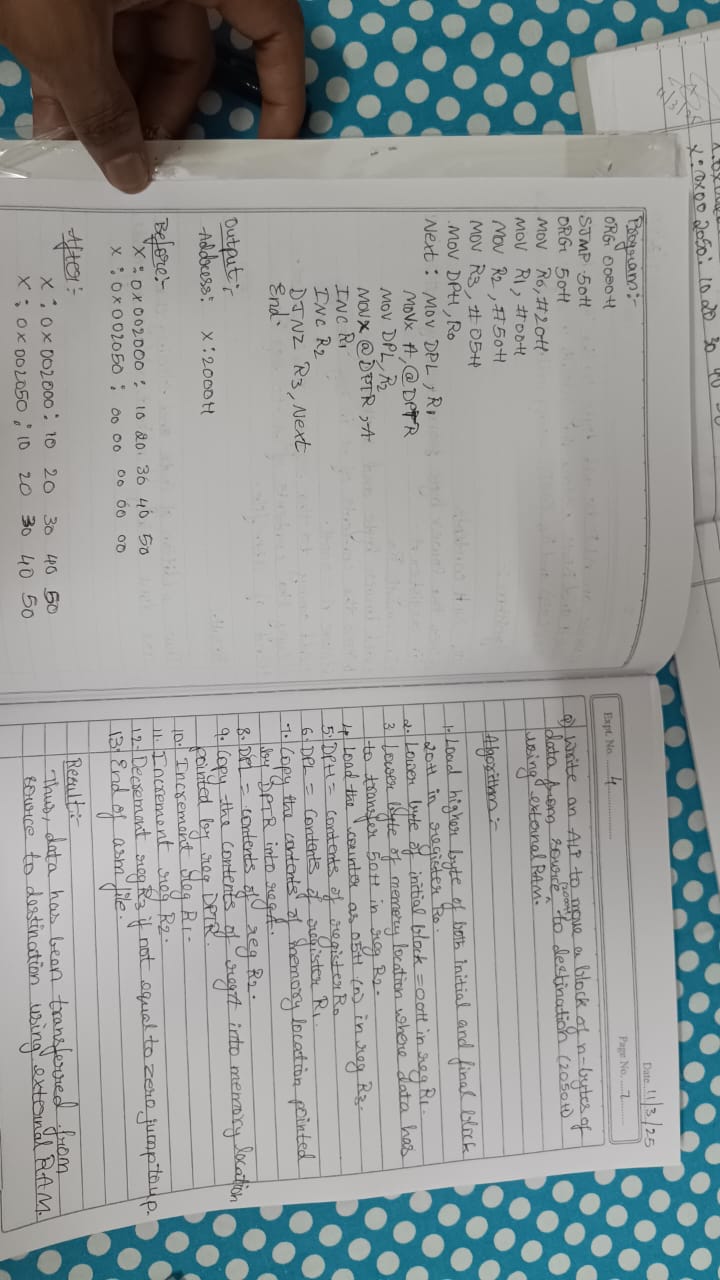 X:0x00 2050: 10 20 30 40 50
Program:-
ORG 0000H
SJMP 50H
ORG 50H
MOV R0, #20H
MOV R1, #00H
MOV R2, #50H
MOV R3, #05H
MOV DPH, R0
Next: MOV DPL, R1
MOVX A, @DPTR
MOV DPL, R2
MOVX @DPTR, A
INC R1
INC R2
DJNZ R3, Next
End.
Output:-
Address: X:2000H
Before:-
X:0x002000: 10 20 30 40 50
X:0x002050: 00 00 00 00 00
After:-
X:0x002000:10 20 30 40 50
X:0x002050:10 20 30 40 50
Date 11/3/25
Expt. No. 4
Page No. 7
Q) Write an ALP to move a block of n-bytes of
data from source (2000H) to destination (2050H)
using external RAM.
Algorithm:-
1. Load higher byte of both initial and final block
20H in register R0.
2. Lower byte of initial block = 00H in reg R1.
3. Lower byte of memory location where data has
to transfer 50H in reg R2.
4. Load the counter as 05H (n) in reg R3.
5. DPH = contents of register R0
6. DPL = contents of register R1.
7. Copy the contents of memory location pointed
by DPTR into regA.
8. DPL = contents of reg R2.
9. Copy the contents of regA into memory location
pointed by reg DPTR.
10. Increment reg R1.
11. Increment reg R2.
12. Decrement reg R3 if not equal to zero jump to up.
13. End of asm file.
Result:-
Thus, data has been transferred from
source to destination using external RAM.